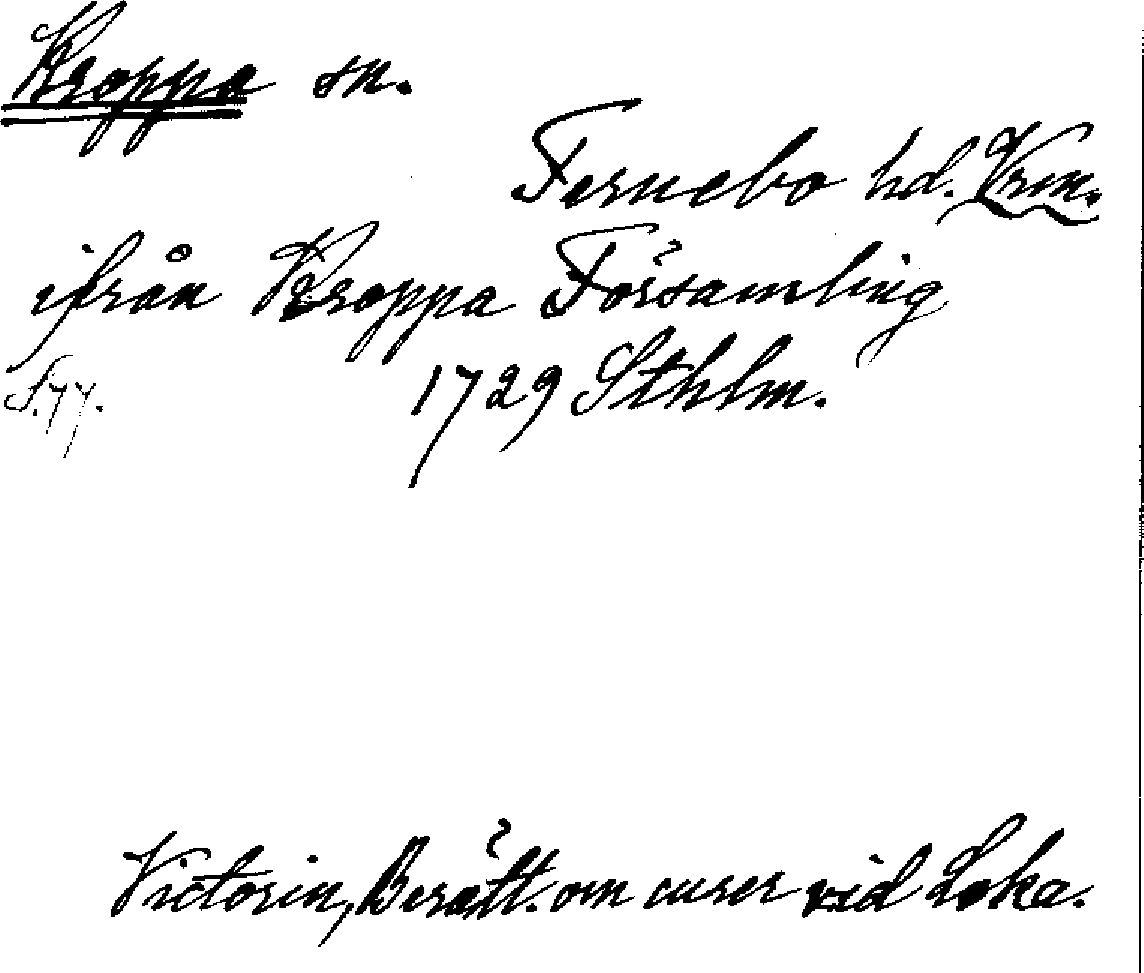 Kroppa sn.
Fernebo hd. Vrm.
ifrån Kroppa Församling
S. 77. 1729 Sthlm.
Victorin, Berätt. om curer vid Loka.